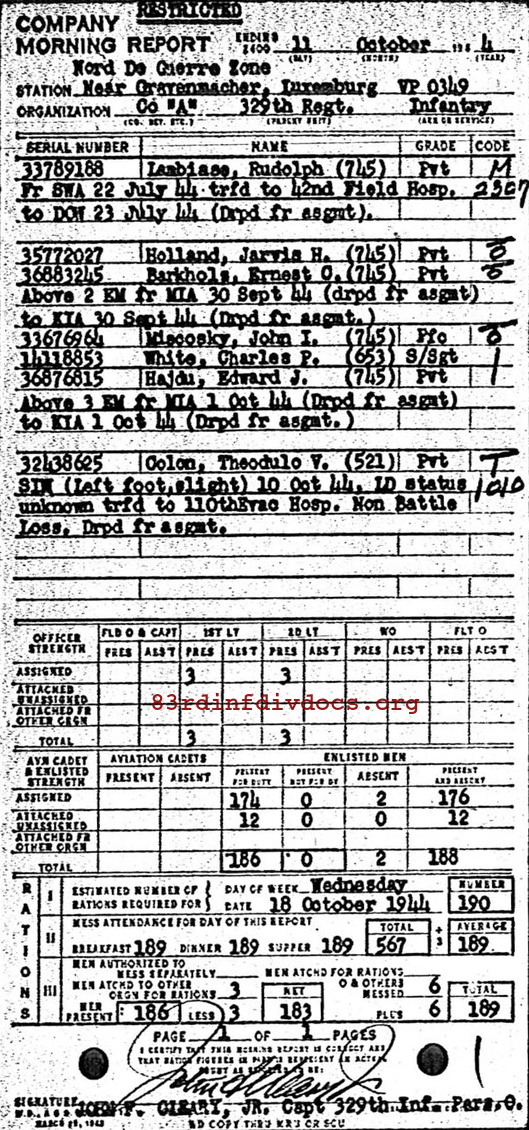 RESTRICTED
COMPANY
MORNING REPORT ENDING 2400 11 October 194 4
(DAY) (MONTH) (YEAR)
Nord De Guerre Zone
STATION Near Gravenmacher, Luxemburg VP 0349
ORGANIZATION Co "A" 329th Regt. Infantry
(CO. DET. ETC.) (PARENT UNIT) (ARM OR SERVICE)
SERIAL NUMBER NAME GRADE CODE
33789188 Lambiase, Rudolph (745) Pvt M
Fr SWA 22 July 44 trfd to 42nd Field Hosp. 2307
to DOW 23 July 44 (Drpd fr asgmt).
35772027 Holland, Jarvis H. (745) Pvt
36883245 Barkholz, Ernest O. (745) Pvt
Above 2 EM fr MIA 30 Sept 44 (drpd fr asgmt)
to KIA 30 Sept 44 (Drpd fr asgmt.)
33676964 Miscosky, John I. (745) Pfc
14118853 White, Charles P. (653) S/Sgt
36876815 Hajdu, Edward J. (745) Pvt
Above 3 EM fr MIA 1 Oct 44 (Drpd fr asgmt)
to KIA 1 Oct 44 (Drpd fr asgmt.)
32438625 Colon, Theodulo V. (521) Pvt T
SIW (Left foot,slight) 10 Oct 44, LD status 1010
unknown trfd to 110thEvac Hosp. Non Battle
Loss, Drpd fr asgmt.
OFFICER STRENGTH FLD O & CAPT 1ST LT 2D LT WO FLT O
PRES ABST PRES ABST PRES ABST PRES ABST PRES ABST
ASSIGNED 3 3
ATTACHED UNASSIGNED
ATTACHED FR OTHER ORGN
83rdinfdivdocs.org
TOTAL 3 3
AVN CADET & ENLISTED STRENGTH AVIATION CADETS ENLISTED MEN
PRESENT ABSENT PRESENT FOR DUTY PRESENT NOT FOR DY ABSENT PRESENT AND ABSENT
ASSIGNED 174 0 2 176
ATTACHED UNASSIGNED 12 0 0 12
ATTACHED FR OTHER ORGN
TOTAL 186 0 2 188
RATIONS
I ESTIMATED NUMBER OF RATIONS REQUIRED FOR DAY OF WEEK Wednesday NUMBER
DATE 18 October 1944 190
II MESS ATTENDANCE FOR DAY OF THIS REPORT TOTAL ÷ 3 AVERAGE
BREAKFAST 189 DINNER 189 SUPPER 189 567 189
III MEN AUTHORIZED TO MESS SEPARATELY MEN ATCHD FOR RATIONS 6
MEN ATCHD TO OTHER ORGN FOR RATIONS 3 NET O & OTHERS MESSED 6 TOTAL
MEN PRESENT 186 LESS 3 183 PLUS 6 189
PAGE 1 OF 1 PAGES
I CERTIFY THAT THIS MORNING REPORT IS CORRECT AND
SIGNATURE John F. Cleary Jr
JOHN F. CLEARY, JR. Capt 329th Inf. Pers.O.
MARCH 25, 1943